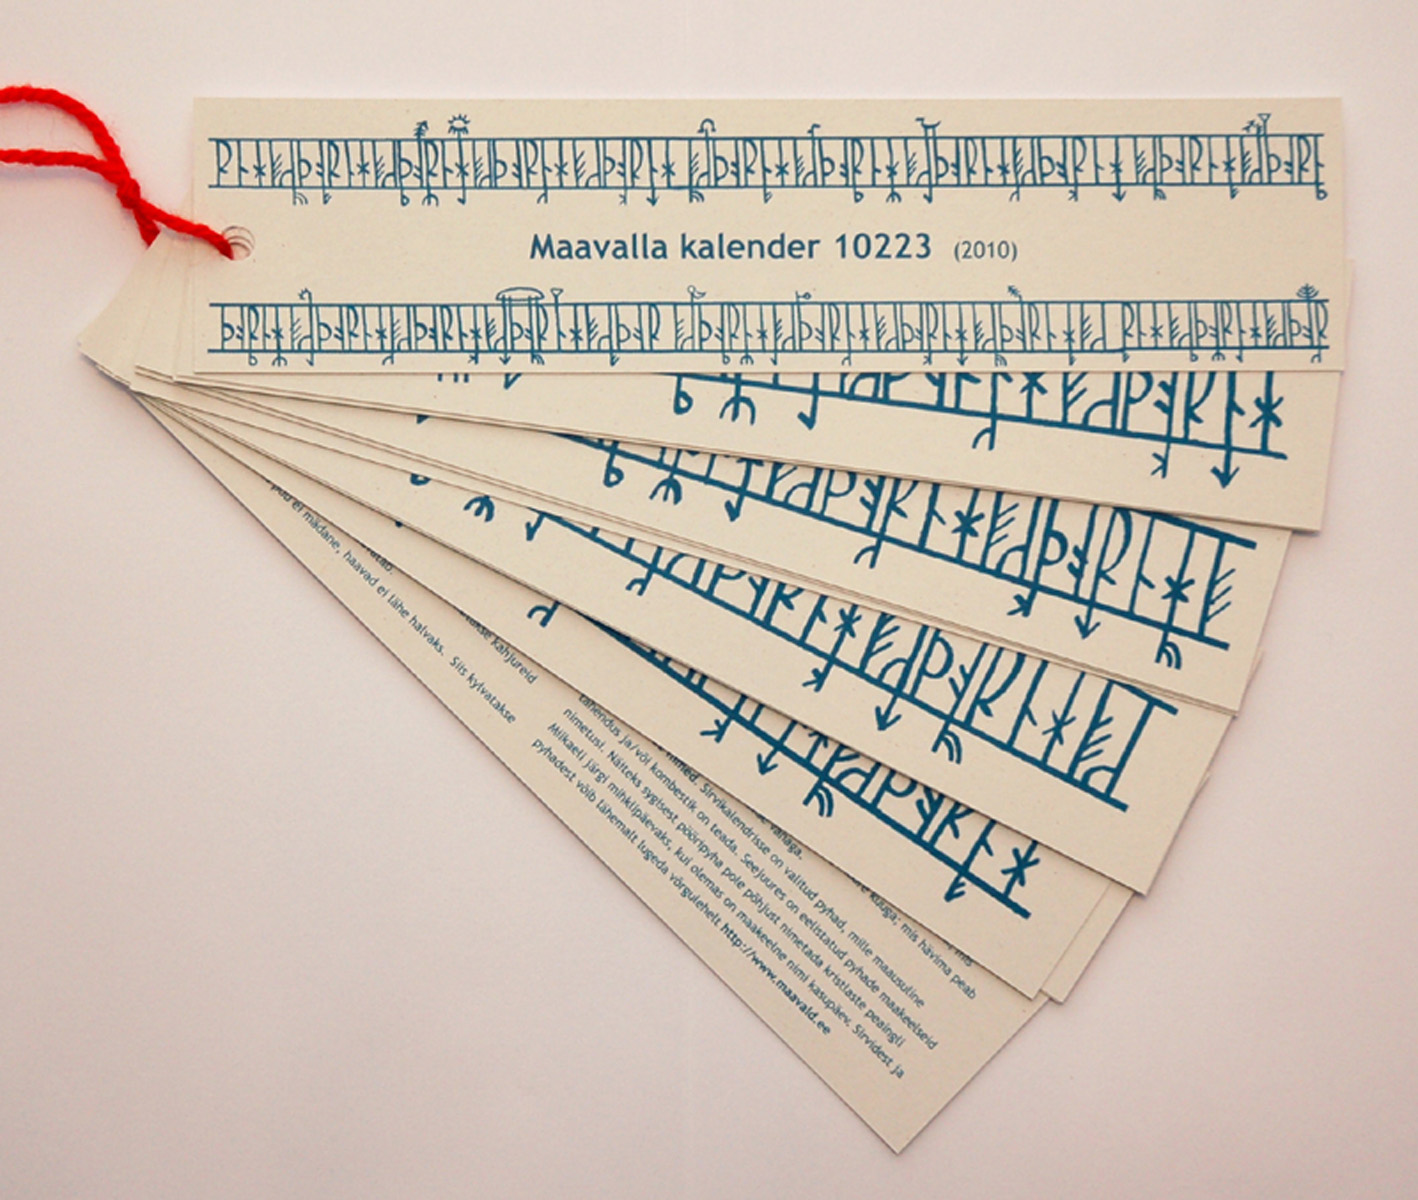 Maavalla kalender 10223 (2010)
ei mädane, haavad ei lähe halvaks. Siis kylvatakse
kahjureid
vanaga,
kuuga; mis hävima peab
mis
nimed. Sirvikalendrisse on valitud pyhad, mille maausuline
tähendus ja/või kombestik on teada. Seejuures on eelistatud pyhade maakeelseid
nimetusi. Näiteks sygisest pööripyha pole põhjust nimetada kristlaste peaingli
Miikaeli järgi mihklipäevaks, kui olemas on maakeelne nimi kasupäev. Sirvidest ja
pyhadest võib lähemalt lugeda võrgulehelt http://www.maavald.ee